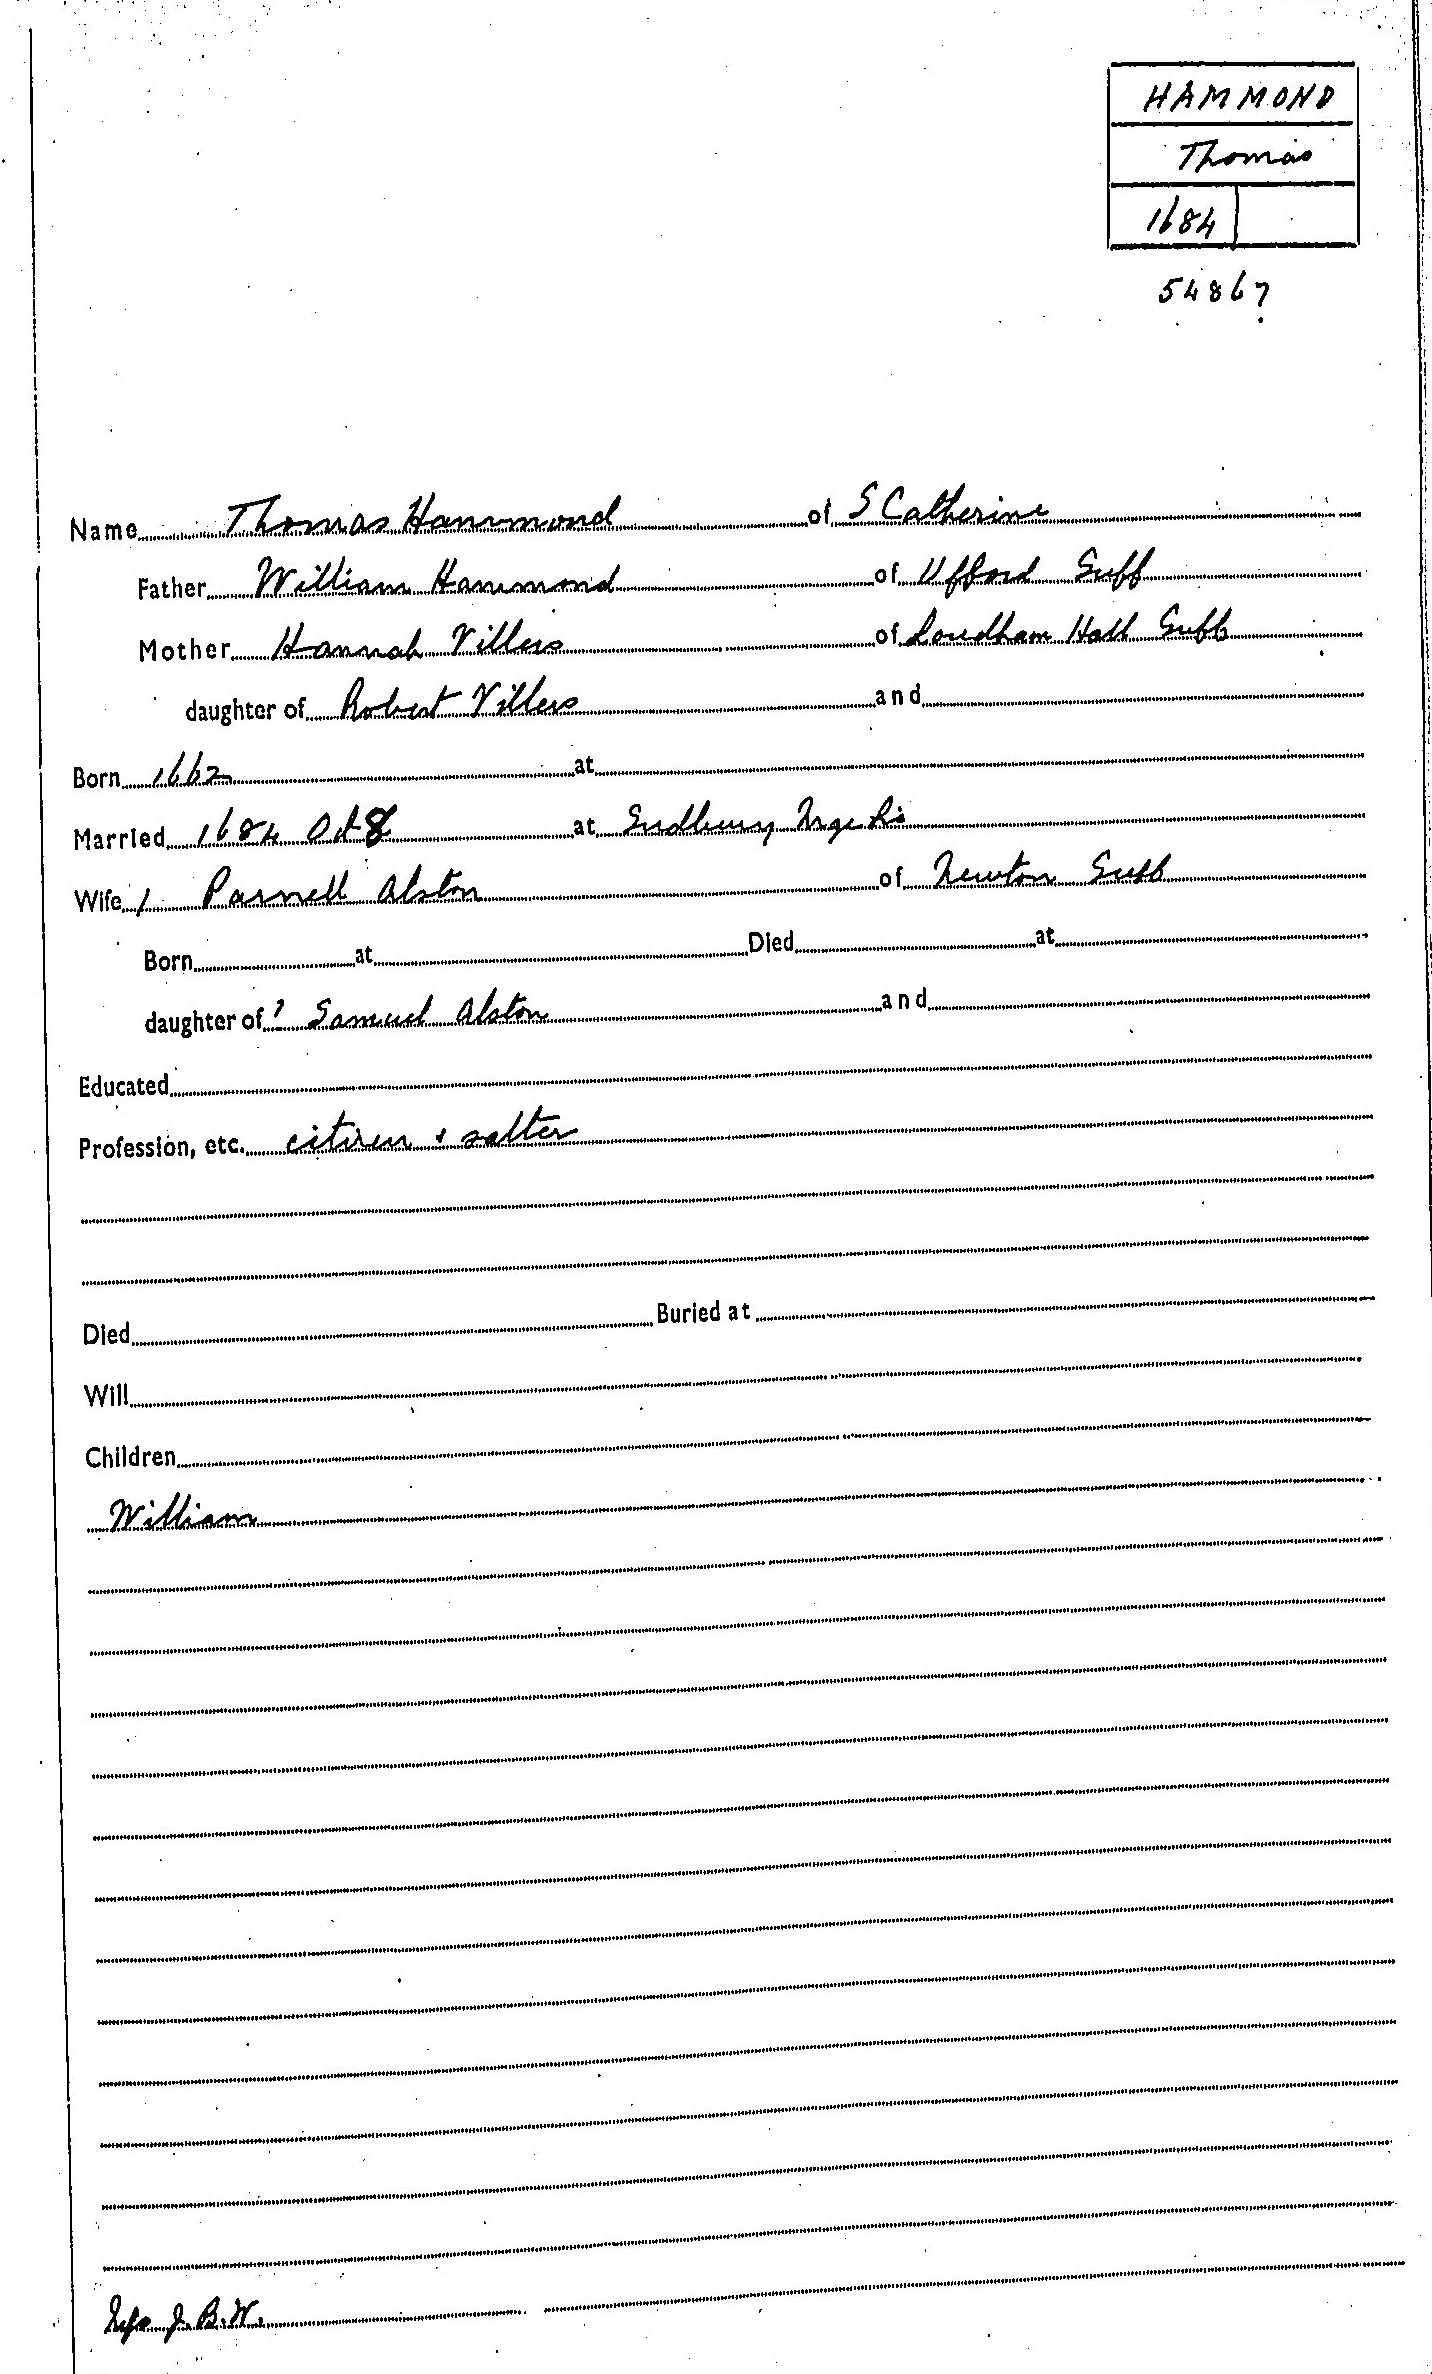 HAMMOND
Thomas
1684
54867
Name Thomas Hammond of S Catherine
Father William Hammond of Ufford Suff
Mother Hannah Villers of Loudham Hall Suff
daughter of Robert Villers and
Born 1662 at
Married 1684 Oct 8 at Sudbury
Wife 1 Parnell Alston of Newton Suff
Born at Died at
daughter of ? Samuel Alston and
Educated
Profession, etc. citizen + salter
Died Buried at
Will
Children
William
J. B. W.